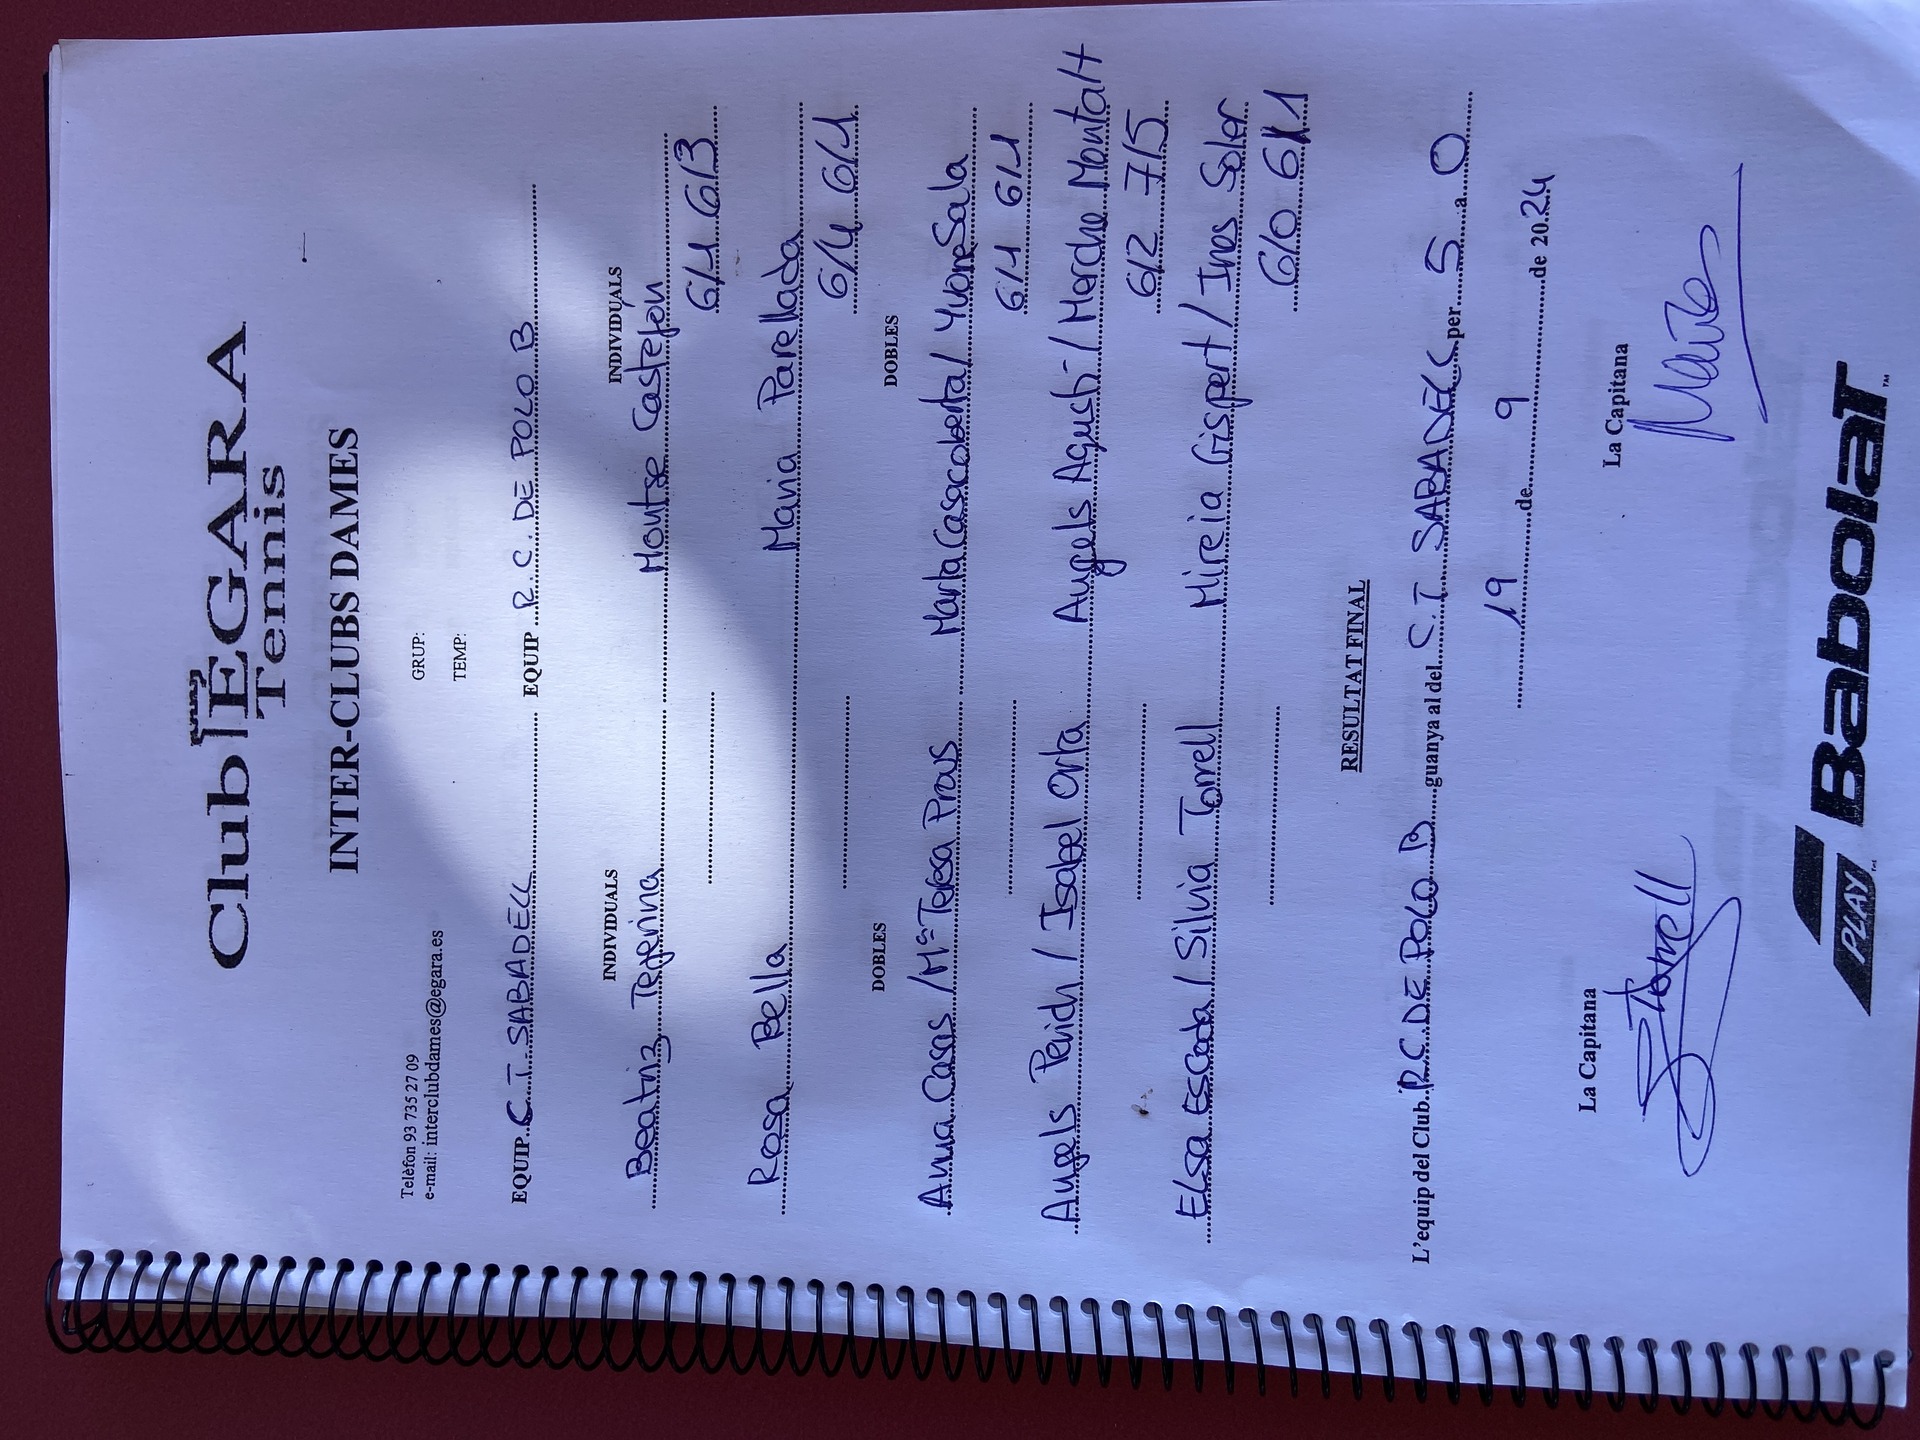 Club EGARA
Tennis
INTER-CLUBS DAMES
Telèfon 93 735 27 09
e-mail: interclubdames@egara.es
GRUP:
TEMP:
EQUIP C.T. SABADELL EQUIP R.C. DE POLO B
INDIVIDUALS INDIVIDUALS
Beatriz Tejerina Montse Castejón
6/1 6/3
Rosa Bella Maria Parellada
6/4 6/1
DOBLES DOBLES
Anna Casas / Mª Teresa Prous Marta Casacoberta / Yvone Sala
6/1 6/1
Angels Perich / Isabel Orta Angels Agustí / Merche Montalt
6/2 7/5
Elsa Escoda / Silvia Torrell Mireia Gispert / Ines Soler
6/0 6/1
RESULTAT FINAL
L'equip del Club R.C. DE POLO B guanya al del C.T. SABADELL per 5 a 0
19 de 9 de 2024
La Capitana La Capitana
STorrell
PLAY Babolat